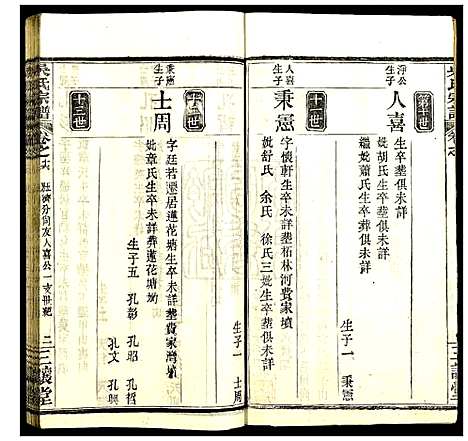 第十世
淨公生子
人喜
生卒塟俱未詳
妣胡氏生卒塟俱未詳
繼妣蕭氏生卒葬俱未詳
生子一 秉憲
十一世
人喜生子
秉憲
字懷軒生卒未詳塟柘林河費家墳
妣舒氏 余氏 徐氏三妣生卒塟俱未詳
生子一 士周
十二世
秉憲生子
士周
字廷若遷居蓮花塘生卒未詳塟費家灣墳
妣章氏生卒未詳葬蓮花塘坳
生子五 孔彰 孔昭 孔哲
孔文 孔興
十三世
吳氏宗譜
卷之六
友人喜公一支世紀
三讓堂